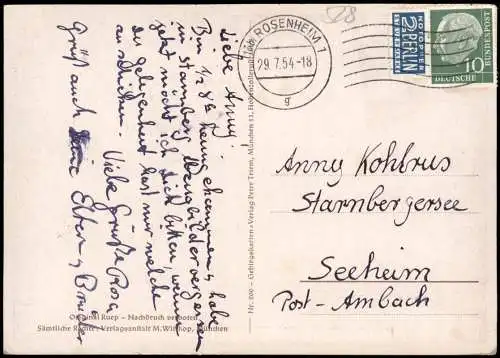 528
ROSENHEIM 1
29.7.54-18
g
NOTOPFER
2 BERLIN
STEUERMARKE
DEUTSCHE
BUNDESPOST
10
Liebe Anny!
Bin 1/2 8h heimgekommen, habe
in Starnberg
jetzt möcht ich Dich bitten, wenn
du Gelegenheit hast mir welche
zu schicken. Viele Grüße Rosa
Grüß auch Deine Eltern, Brüder
Anny Kohlrus
Starnbergersee
Seeheim
Post-Ambach
Nr. 200 - Gebirgskarten-Verlag Peter Truem, München 13, Hohenzollernstraße
Original Ruep - Nachdruck verboten
Sämtliche Rechte: Verlagsanstalt M. Withop, München